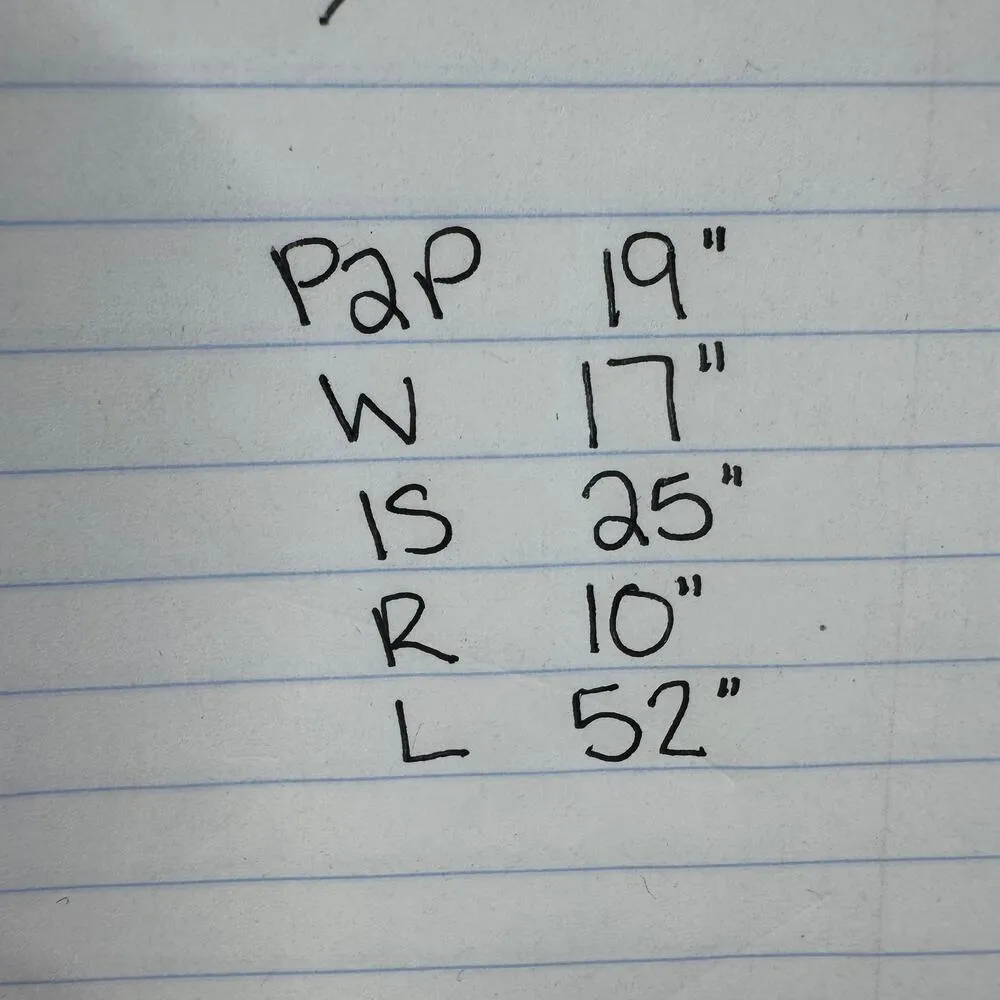 P2P 19"
W 17"
IS 25"
R 10"
L 52"